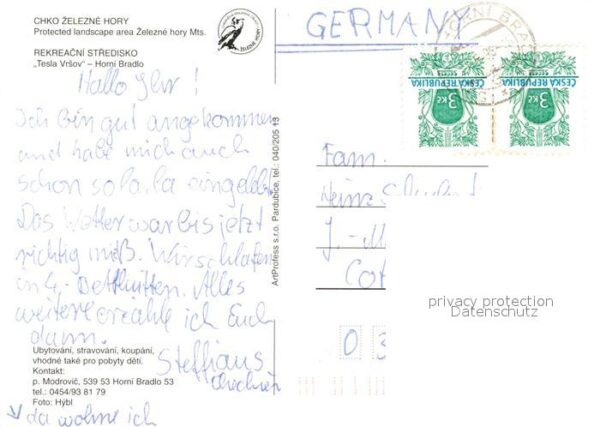 CHKO ŽELEZNÉ HORY
Protected landscape area Železné hory Mts.
REKREAČNÍ STŘEDISKO
„Tesla Vršov" – Horní Bradlo
ŽELEZNÉ HORY
GERMANY
HORNÍ BRADLO
ČESKÁ REPUBLIKA
3 Kč
ČESKÁ REPUBLIKA
3 Kč
Hallo Ihr!
Ich bin gut angekommen
und habe mich auch
schon so la, la eingelebt.
Das Wetter war bis jetzt
richtig mieß. Wir schlafen
in 4-Betthütten. Alles
weitere erzähle ich Euch
dann.
Steffi aus
ArtProfess s.r.o. Pardubice, tel.: 040/205 13
Fam.
Heinz
J.-M
Cot
privacy protection
Datenschutz
0 3
Ubytování, stravování, koupání,
vhodné také pro pobyty dětí.
Kontakt:
p. Modrovič, 539 53 Horní Bradlo 53
tel.: 0454/93 81 79
Foto: Hýbl
da wohne ich